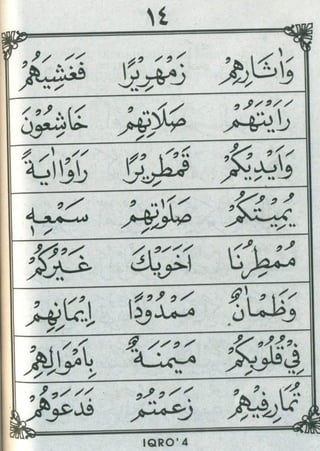 ١٤
وَاٰثَارِهِمْ زَمْهَرِيْرًا فَغَشِيَهُمْ
رَاَيْتَهُمْ صَلَاتِهِمْ خَاشِعُوْنَ
وَاَيْدِيْكُمْ قَمْطَرِيْرًا رَاَوْا اٰيَةً
يُمِيْتُكُمْ صَلَوٰتِهِمْ سَمْعِهٖ
مُمْطِرُنَا اَخَوَيْكَ غَيْرُكُمْ
وَظَمْاٰنٌ مَمْدُوْدًا اِيْمَانِهِمْ
فِيْ قُلُوْبِكُمْ مَيْمَنَةٌ بِاَمْوَالِهِمْ
تُمَارِ فِيْهِمْ زَعَمْتُمْ فَدَعَوْهُمْ
IQRO' 4